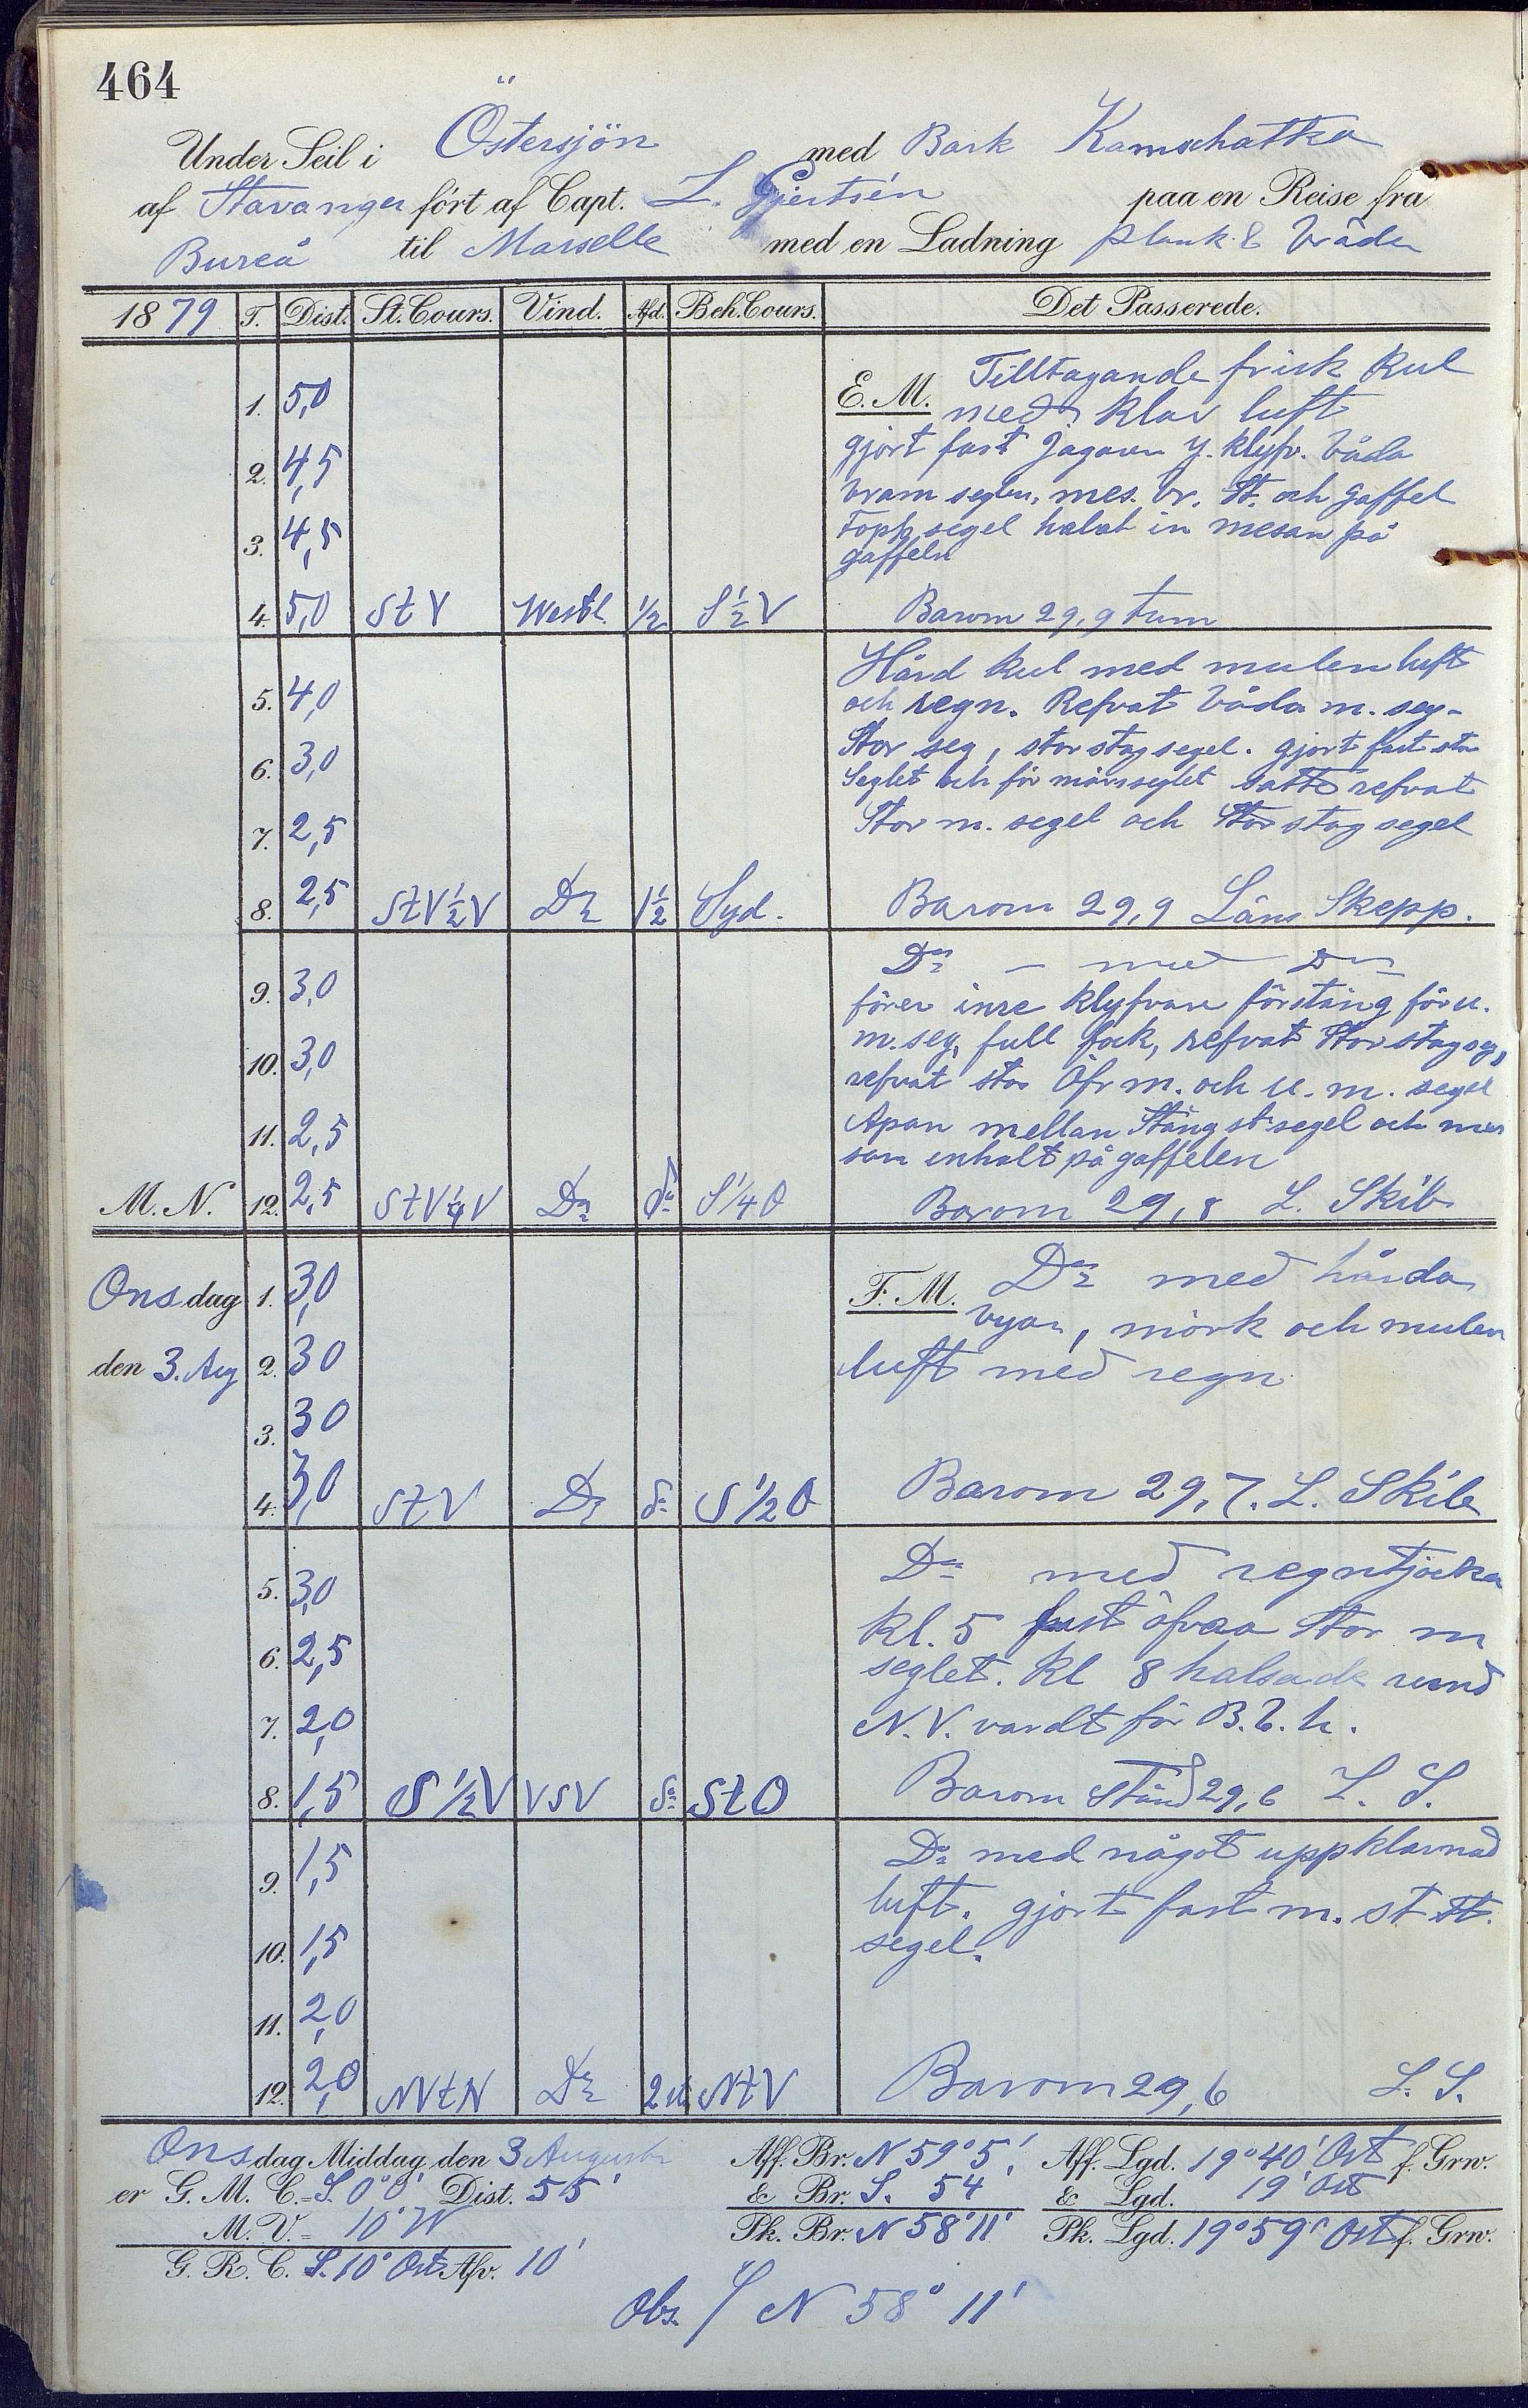 464
Under Seil i Östersjön med Bark Kamschatka
af Stavanger fört af Capt. L. Gjertsén paa en Reise fra
Bureå til Marselle med en Ladning plank & bräder
1879 T. Dist. St. Cours. Vind. Afd. Beh. Cours. Det Passerede.
E. M. Tilltagande frisk kul
1. 5,0 med klar luft
gjort fast Jagaren y. klyfv. båda
2. 4,5
bram seglen, mes. br. St. och gaffel
3. 4,5 topp segel halat in mesan på
gaffeln
4. 5,0 StV Westl. 1/2 S 1/2 V Barom 29,9 tum
Hård kul med mulen luft
5. 4,0 och regn. Refvat båda m. seg-
6. 3,0 Stor seg, stor stagsegel. gjort fast stor
Seglet och för märsseglet satt refvat
7. 2,5 Stor m. segel och Stor stag segel
8. 2,5 StV 1/2 V Do 1 1/2 Syd. Barom 29,9 Läns Skepp.
Do — med Do
9. 3,0 förer inre klyfvare förstäng för u.
10. 3,0 m. seg, full fock, refvat Stor stag seg,
refvat stor Öfr m. och u. m. segel
11. 2,5 Apan mellan Stäng st segel och me
san inhalt på gaffelen
M. N. 12. 2,5 StV 1/4 V Do do S 1/4 O Barom 29,8 L. Skib
Onsdag 1. 3,0 F. M. Do med hårda
byar, mörk och mulen
den 3. Aug 2. 30 luft med regn
3. 30
4. 3,0 StV Do do S 1/2 O Barom 29,7. L. Skib
Do med regntjocka
5. 3,0
Kl. 5 fast öfvra Stor m
6. 2,5 seglet. Kl 8 halsade rund
7. 2,0 N. V. vardt för B. b. h.
8. 1,5 S 1/2 V VSV do StO Barom Stånd 29,6 L. S.
Do med något uppklarnad
9. 1,5 luft. gjort fast m. st St.
10. 1,5 segel.
11. 2,0
12. 2,0 NVtN Do 2 NtV Barom 29,6 L. S.
Onsdag Middag den 3 Augusti Aff. Br. N 59° 5' Aff. Lgd. 19° 40' Ost f. Grw.
er G. M. C. = S. 0° 0' Dist. 55' & Br. S. 54 & Lgd. 19' Ost
M. V. = 10° W Pk. Br. N 58° 11' Pk. Lgd. 19° 59' Ost f. Grw.
G. R. C. S. 10° Ost Afv. 10'
Obs. N 58° 11'